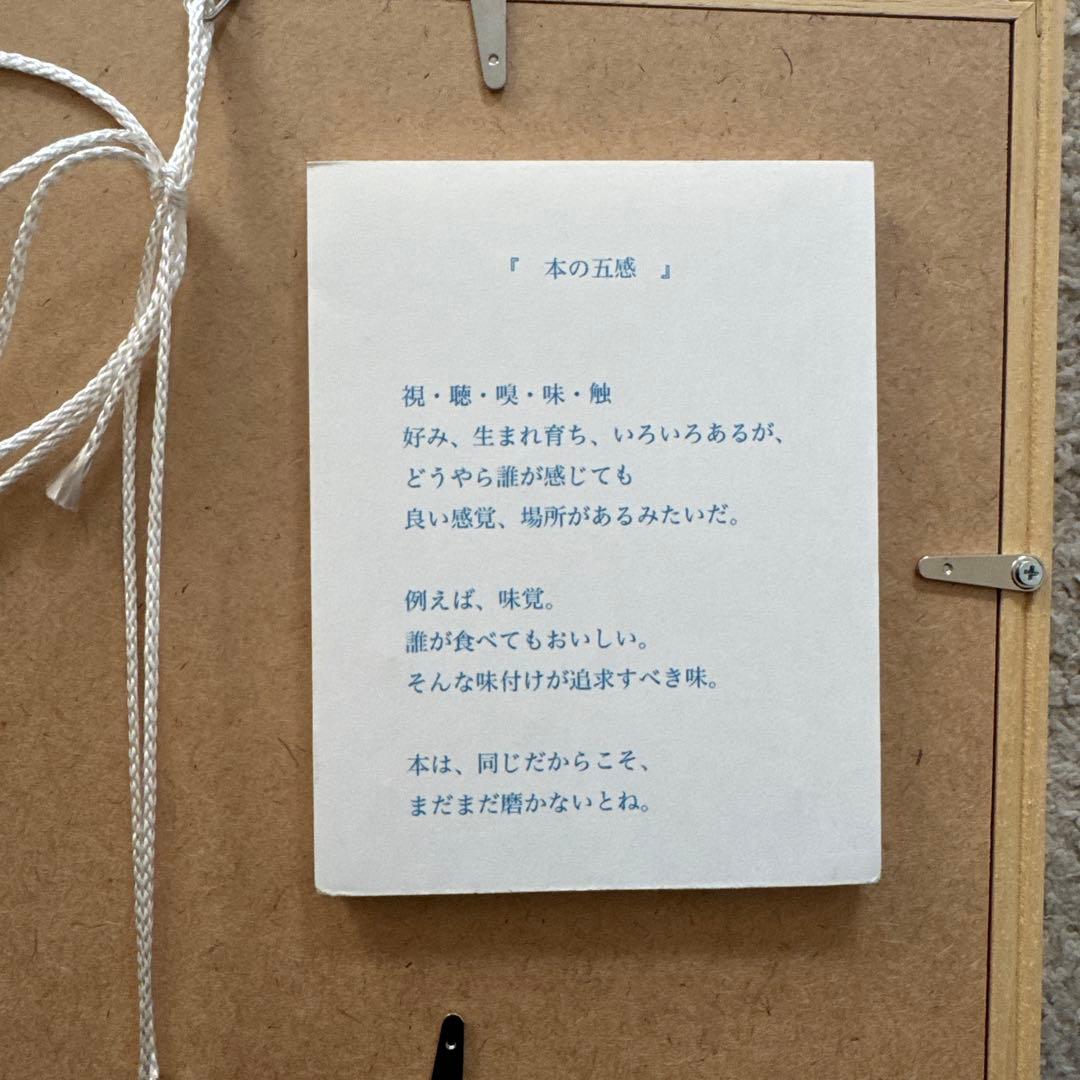 『　本の五感　』
視・聴・嗅・味・触
好み、生まれ育ち、いろいろあるが、
どうやら誰が感じても
良い感覚、場所があるみたいだ。
例えば、味覚。
誰が食べてもおいしい。
そんな味付けが追求すべき味。
本は、同じだからこそ、
まだまだ磨かないとね。